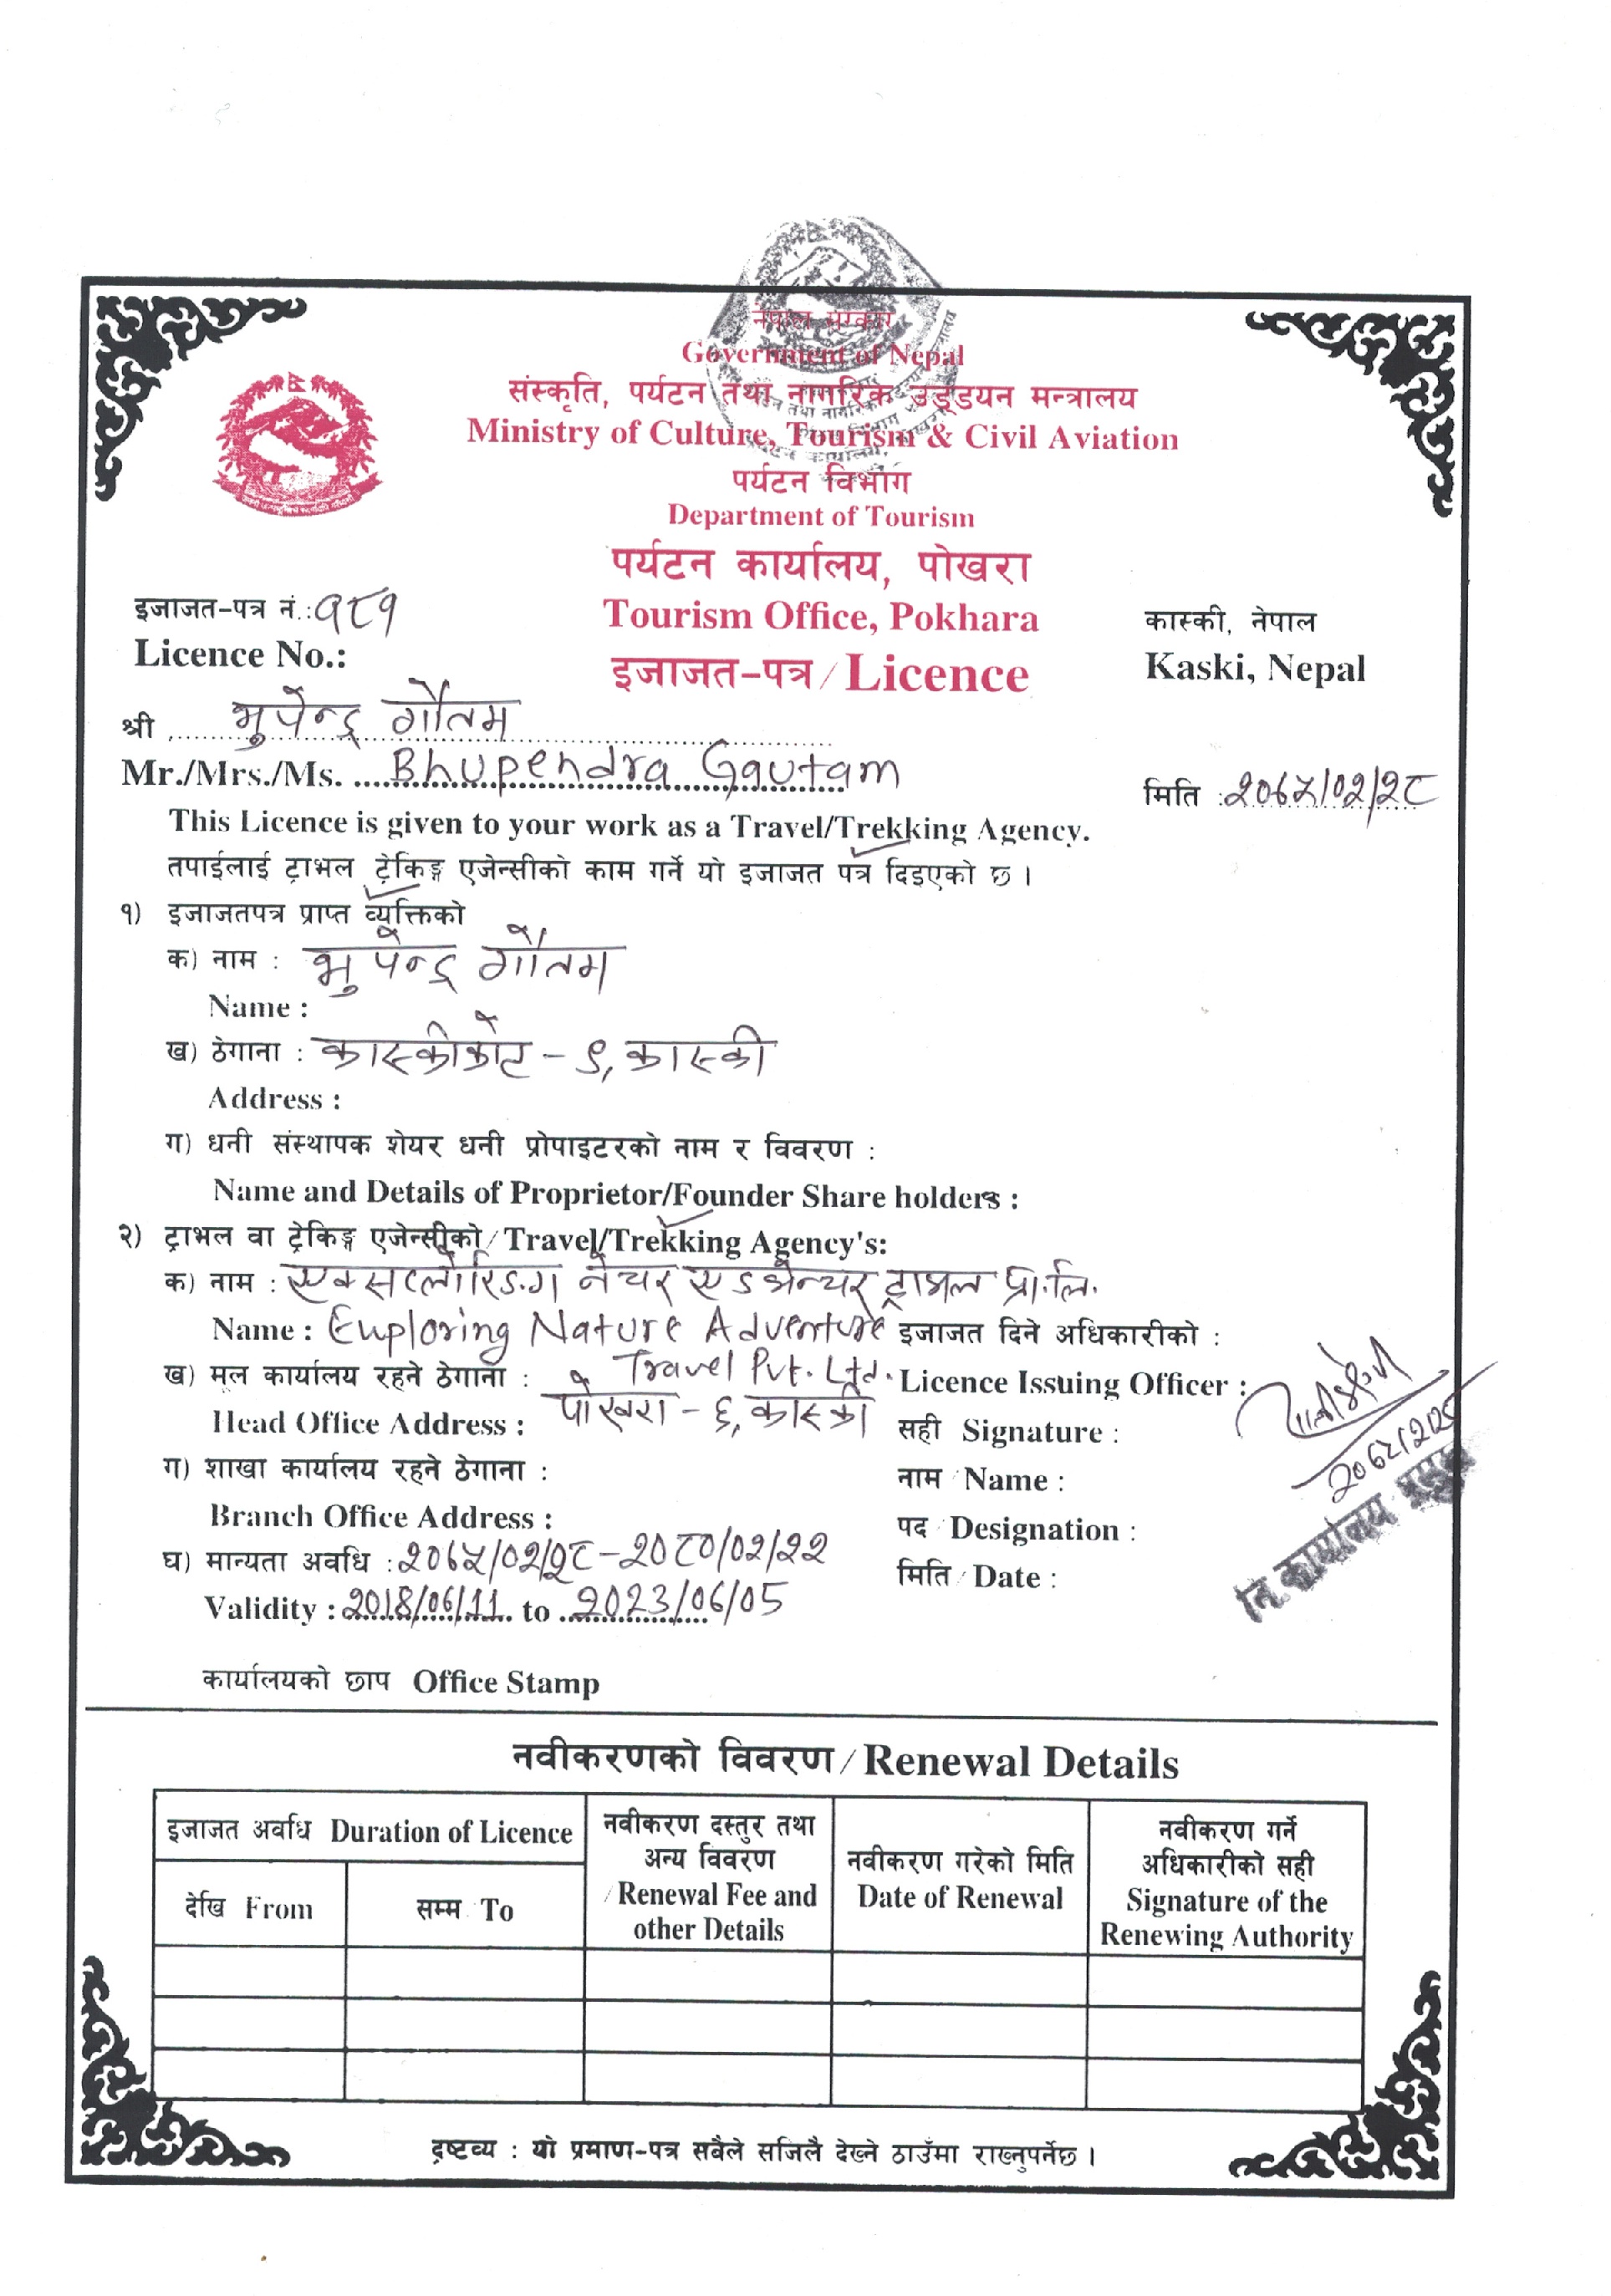 नेपाल सरकार
Government of Nepal
संस्कृति, पर्यटन तथा नागरिक उड्डयन मन्त्रालय
Ministry of Culture, Tourism & Civil Aviation
पर्यटन विभाग
Department of Tourism
पर्यटन कार्यालय, पोखरा
इजाजत-पत्र नं.: १८१
Tourism Office, Pokhara
कास्की, नेपाल
Licence No.:
इजाजत-पत्र / Licence
Kaski, Nepal
श्री भुपेन्द्र गौतम
Mr./Mrs./Ms. Bhupendra Gautam
मिति : २०७५/०२/२८
This Licence is given to your work as a Travel/Trekking Agency.
तपाईलाई ट्राभल ट्रेकिङ्ग एजेन्सीको काम गर्ने यो इजाजत पत्र दिइएको छ ।
१) इजाजतपत्र प्राप्त व्यक्तिको
क) नाम : भुपेन्द्र गौतम
Name :
ख) ठेगाना : कास्कीकोट - ९, कास्की
Address :
ग) धनी संस्थापक शेयर धनी प्रोपाइटरको नाम र विवरण :
Name and Details of Proprietor/Founder Share holders :
२) ट्राभल वा ट्रेकिङ्ग एजेन्सीको / Travel/Trekking Agency's:
क) नाम : एक्सप्लोरिङग नेचर एडभेन्चर ट्राभल प्रा.लि.
Name : Exploring Nature Adventure
Travel Pvt. Ltd.
इजाजत दिने अधिकारीको :
ख) मूल कार्यालय रहने ठेगाना :
Licence Issuing Officer :
Head Office Address : पोखरा - ६, कास्की
सही Signature :
ग) शाखा कार्यालय रहने ठेगाना :
नाम / Name :
Branch Office Address :
पद / Designation :
घ) मान्यता अवधि : २०७५/०२/२८ - २०८०/०२/२२
मिति / Date :
Validity : 2018/06/11 to 2023/06/05
नि. कार्यालय प्रमुख
कार्यालयको छाप Office Stamp
नवीकरणको विवरण / Renewal Details
इजाजत अवधि Duration of Licence
देखि From
सम्म To
नवीकरण दस्तुर तथा
अन्य विवरण
/ Renewal Fee and
other Details
नवीकरण गरेको मिति
Date of Renewal
नवीकरण गर्ने
अधिकारीको सही
Signature of the
Renewing Authority
द्रष्टव्य : यो प्रमाण-पत्र सवैले सजिलै देख्ने ठाउँमा राख्नुपर्नेछ ।